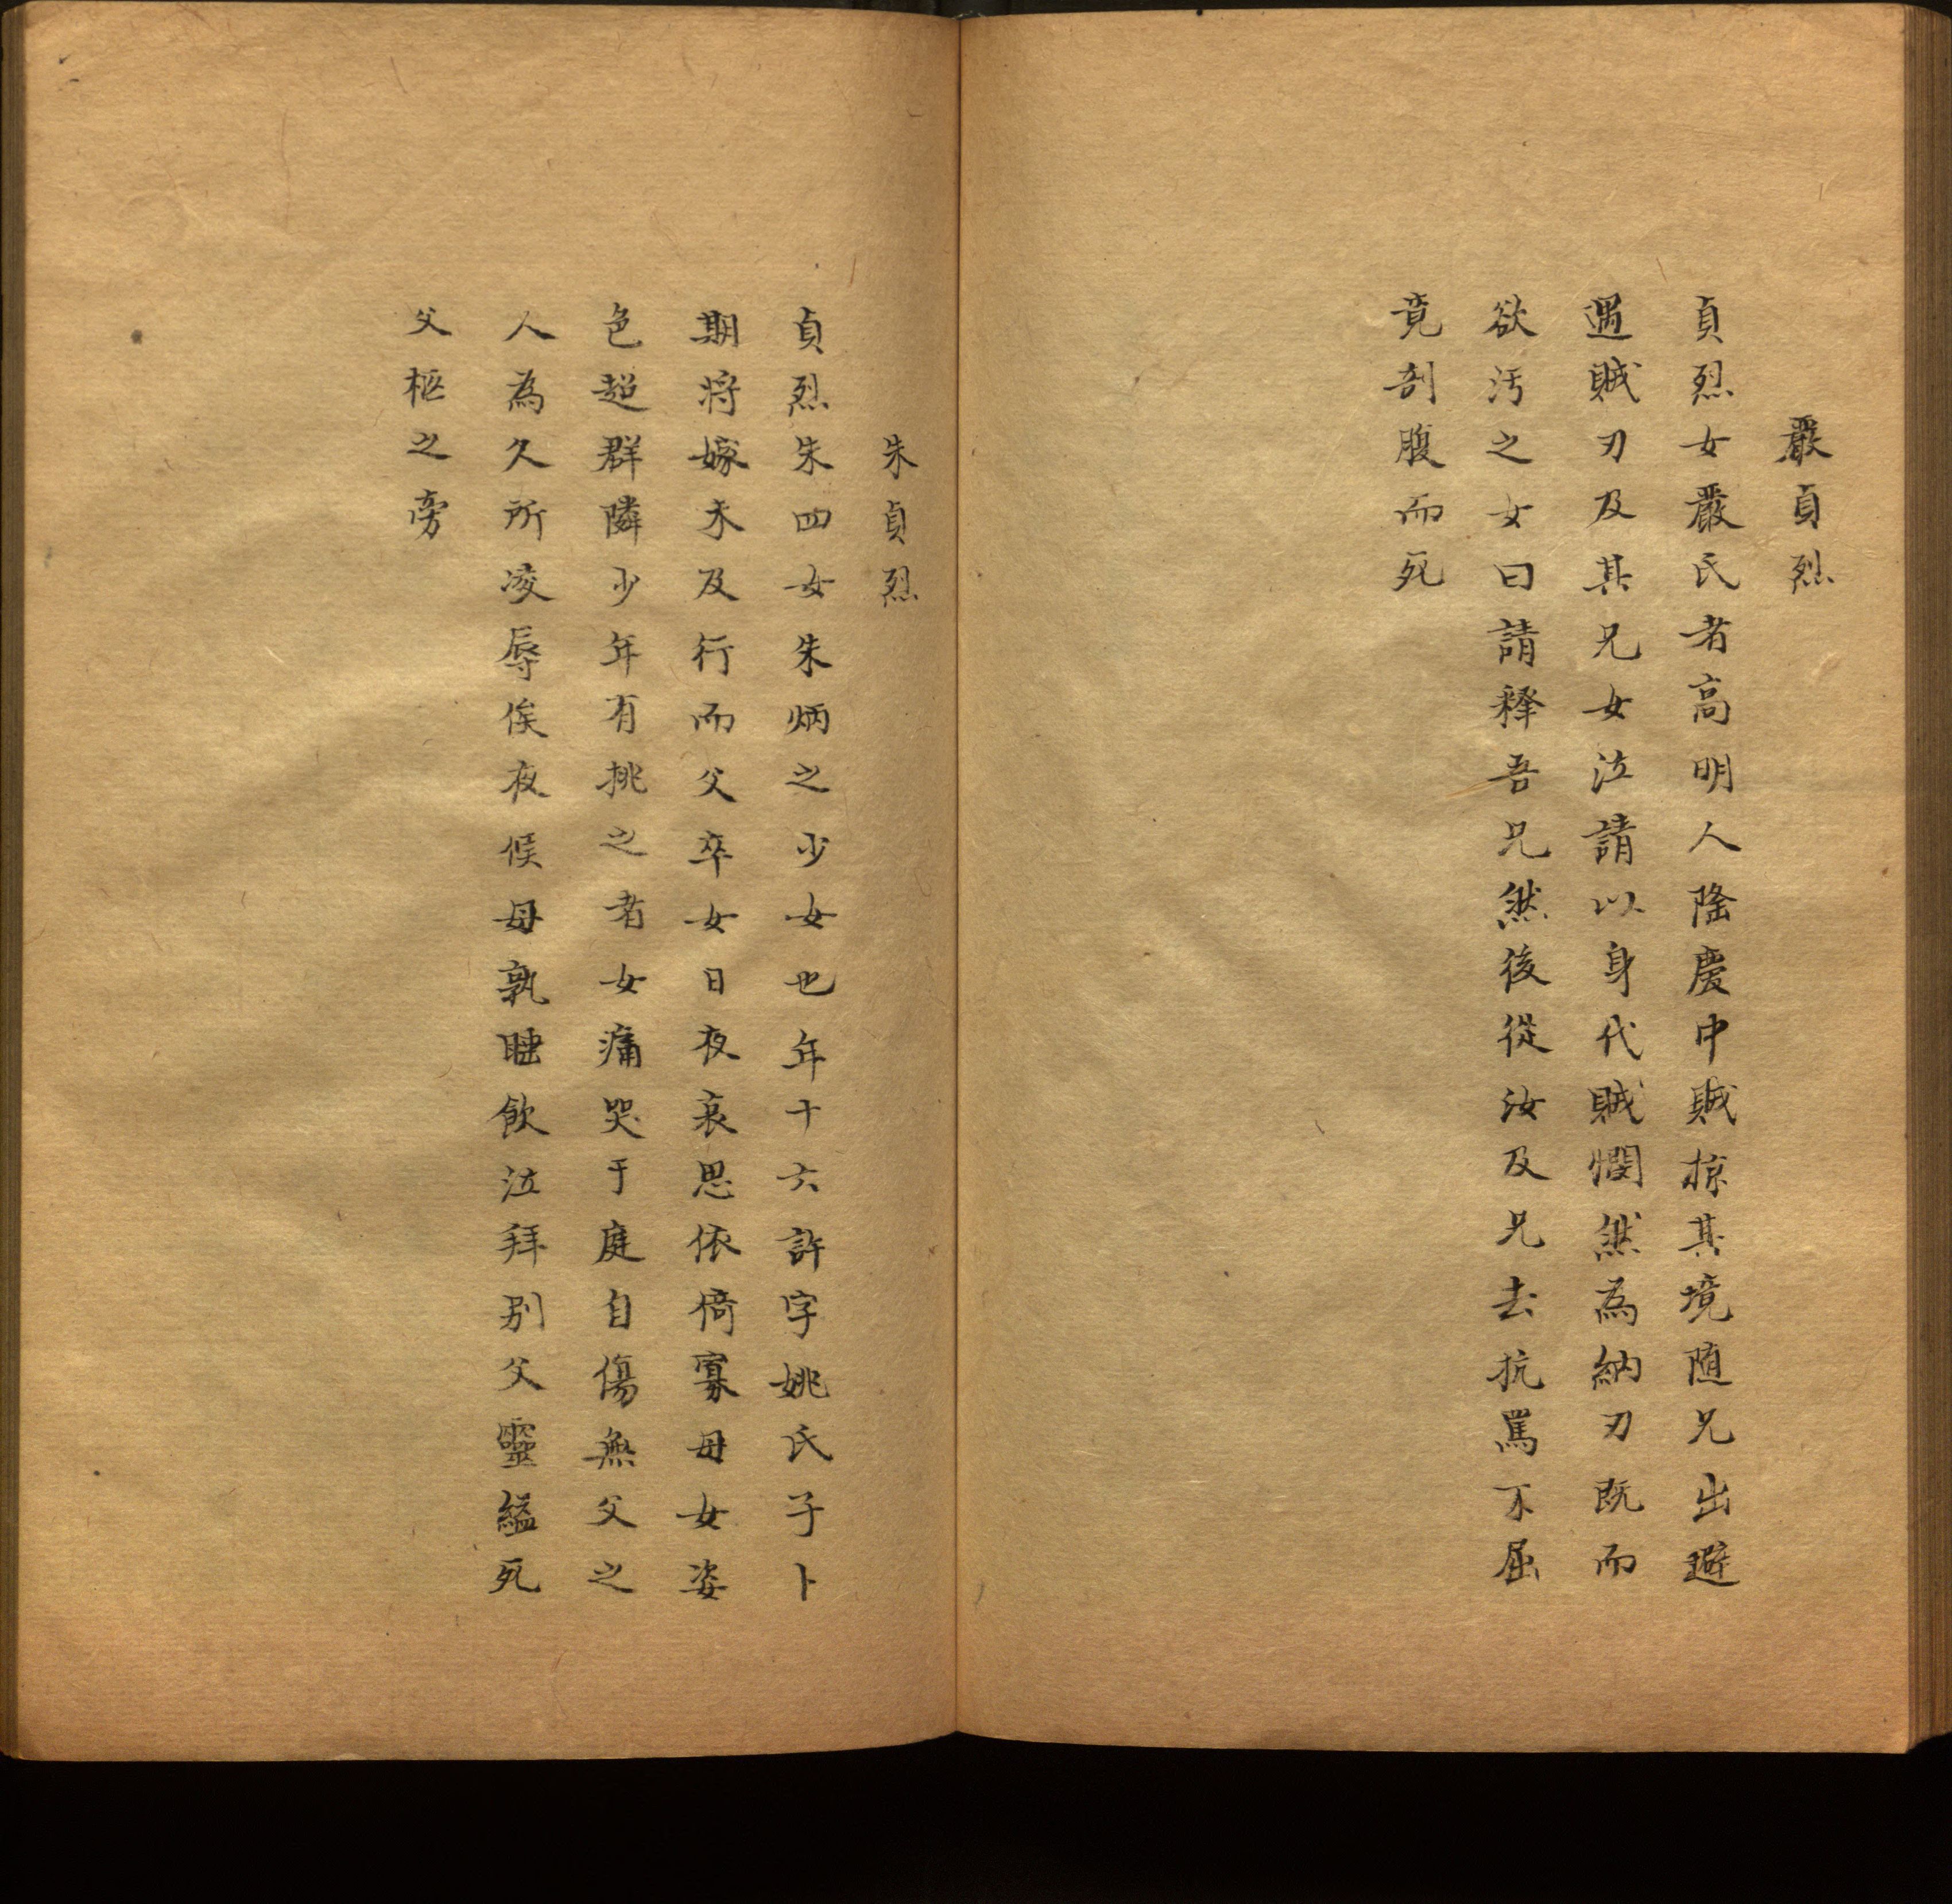 嚴貞烈
貞烈女嚴氏者高明人隆慶中賊掠其境随兄出避
遇賊刃及其兄女泣請以身代賊憫然為納刃既而
欲汚之女曰請释吾兄然後從汝及兄去抗罵不屈
竟剖腹而死
朱貞烈
貞烈朱四女朱炳之少女也年十六許字姚氏子卜
期将嫁未及行而父卒女日夜哀思依倚寡母女姿
色超群隣少年有挑之者女痛哭于庭自傷無父之
人為久所凌辱俟夜候母孰睡飲泣拜别父靈縊死
父柩之旁